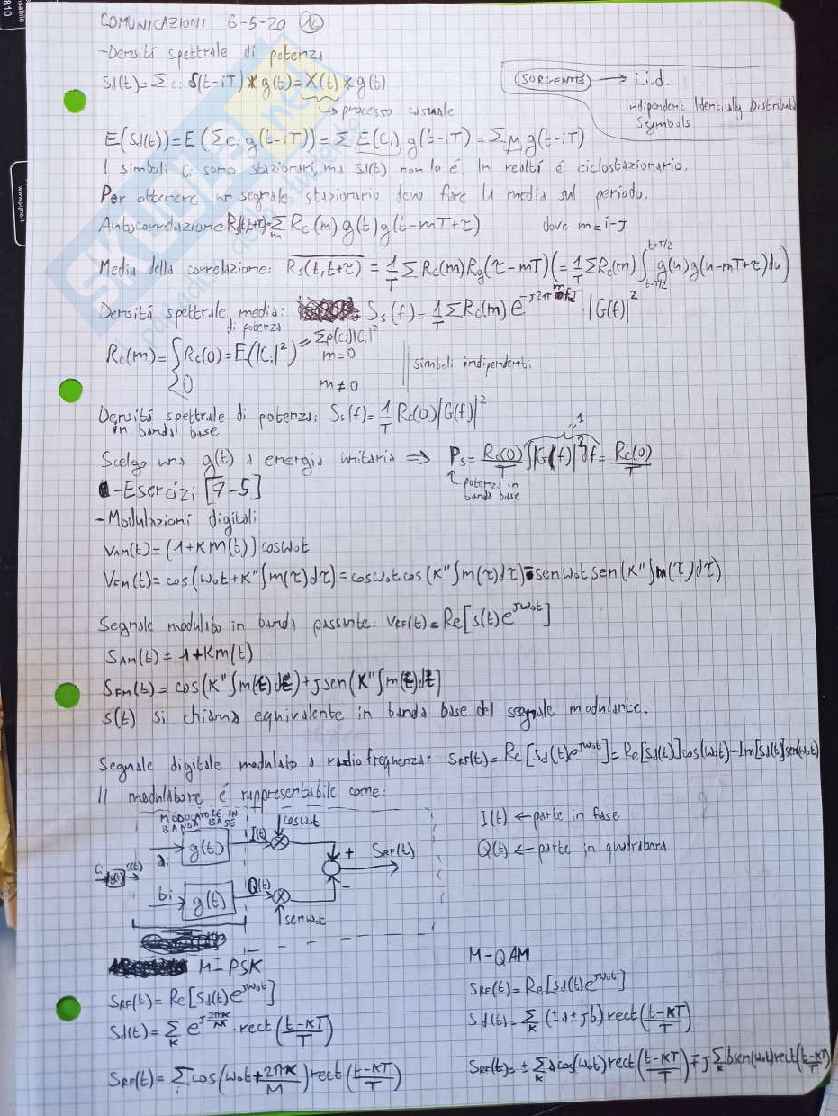 COMUNICAZIONI 6-5-20
-Densità spettrale di potenza
Sd(t)=Σ ci δ(t-iT) * g(t) = X(t) * g(t)
processo casuale
(SORGENTE) → i.i.d.
Independent Identically Distributed
Symbols
E(Sd(t)) = E(Σ ci g(t-iT)) = Σ E(Ci) g(t-iT) = Σ M g(t-iT)
I simboli Ci sono stazionari, ma Sd(t) non lo è. In realtà è ciclostazionario.
Per ottenere un segnale stazionario devo fare la media sul periodo.
Autocorrelazione Rs(t,t+τ)=Σm Rc(m) g(t) g(t-mT+τ) dove m=i-J
Media della correlazione: Rs(t,t+τ) = 1/T Σ Rc(m) Rg(τ-mT) (= 1/T Σ Rc(m) ∫ t-T/2 t+T/2 g(u) g(u-mT+τ) du)
Densità spettrale media: Ss(f) = 1/T Σ Rc(m) e^-j2πmfT · |G(f)|²
di potenza
Rc(m) = { Rc(0) = E(|Ci|²) = Σ p(ci)|Ci|² m=0
0 m≠0
simboli indipendenti
Densità spettrale di potenza: Ss(f) = 1/T Rc(0) |G(f)|²
in banda base
Scelgo una g(t) a energia unitaria ⇒ Ps = Rc(0)/T ∫|G(f)|² df = Rc(0)/T
1
potenza in
banda base
-Esercizi [7-5]
-Modulazioni digitali
VAM(t)=(1+Km(t)) cosω0t
VFM(t) = cos(ω0t+K''∫m(τ)dτ) = cosω0t cos(K''∫m(τ)dτ) - senω0t sen(K''∫m(τ)dτ)
Segnale modulato in banda passante VRF(t) = Re[s(t)e^jω0t]
SAM(t) = 1+Km(t)
SFM(t) = cos(K''∫m(τ)dτ)+j sen(K''∫m(τ)dτ)
s(t) si chiama equivalente in banda base del segnale modulante.
Segnale digitale modulato a radiofrequenza: SRF(t) = Re[Sd(t)e^jω0t] = Re[Sd(t)]cos(ω0t) - Im[Sd(t)]sen(ω0t)
Il modulatore è rappresentabile come:
MODULATORE IN
BANDA BASE
cosω0t
ai g(t) I(t) X
+ SRF(t)
-
bi g(t) Q(t) X
senω0t
I(t) ← parte in fase
Q(t) ← parte in quadratura
M-PSK
SRF(t) = Re[Sd(t)e^jω0t]
Sd(t) = Σk e^j2πk/M rect(t-KT/T)
SRF(t) = Σ cos(ω0t+2πK/M) rect(t-KT/T)
M-QAM
SRF(t) = Re[Sd(t)e^jω0t]
Sd(t) = Σk (±a±jb) rect(t-KT/T)
SRF(t) = ± Σk a cos(ω0t) rect(t-KT/T) ∓ j Σk b sen(ω0t) rect(t-KT/T)